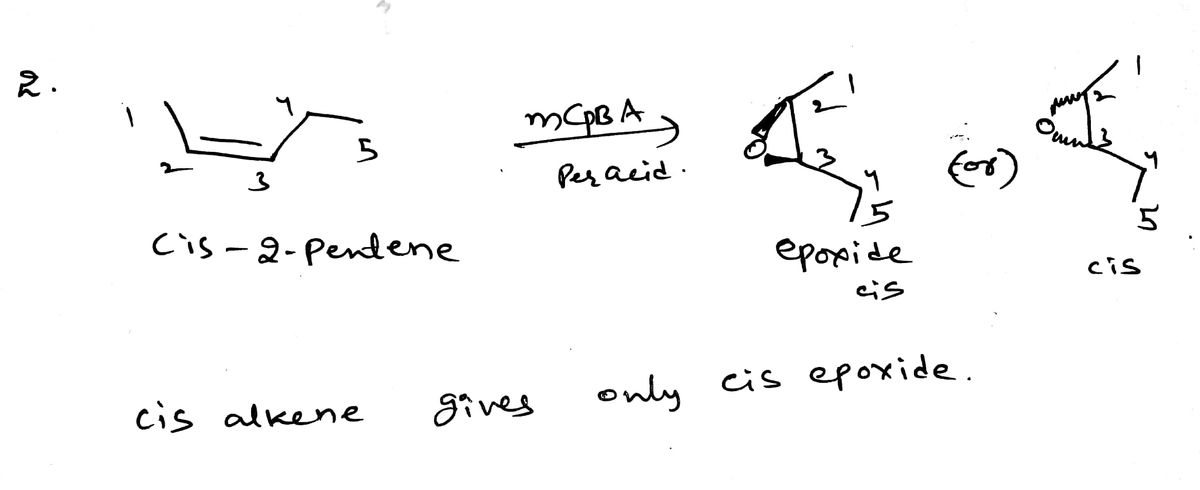 2.
1 2 3 4 5
mCpBA
Peracid.
O 1 2 3 4 5
(or)
O 1 2 3 4 5
cis-2-pentene
epoxide
cis
cis
cis alkene gives only cis epoxide.